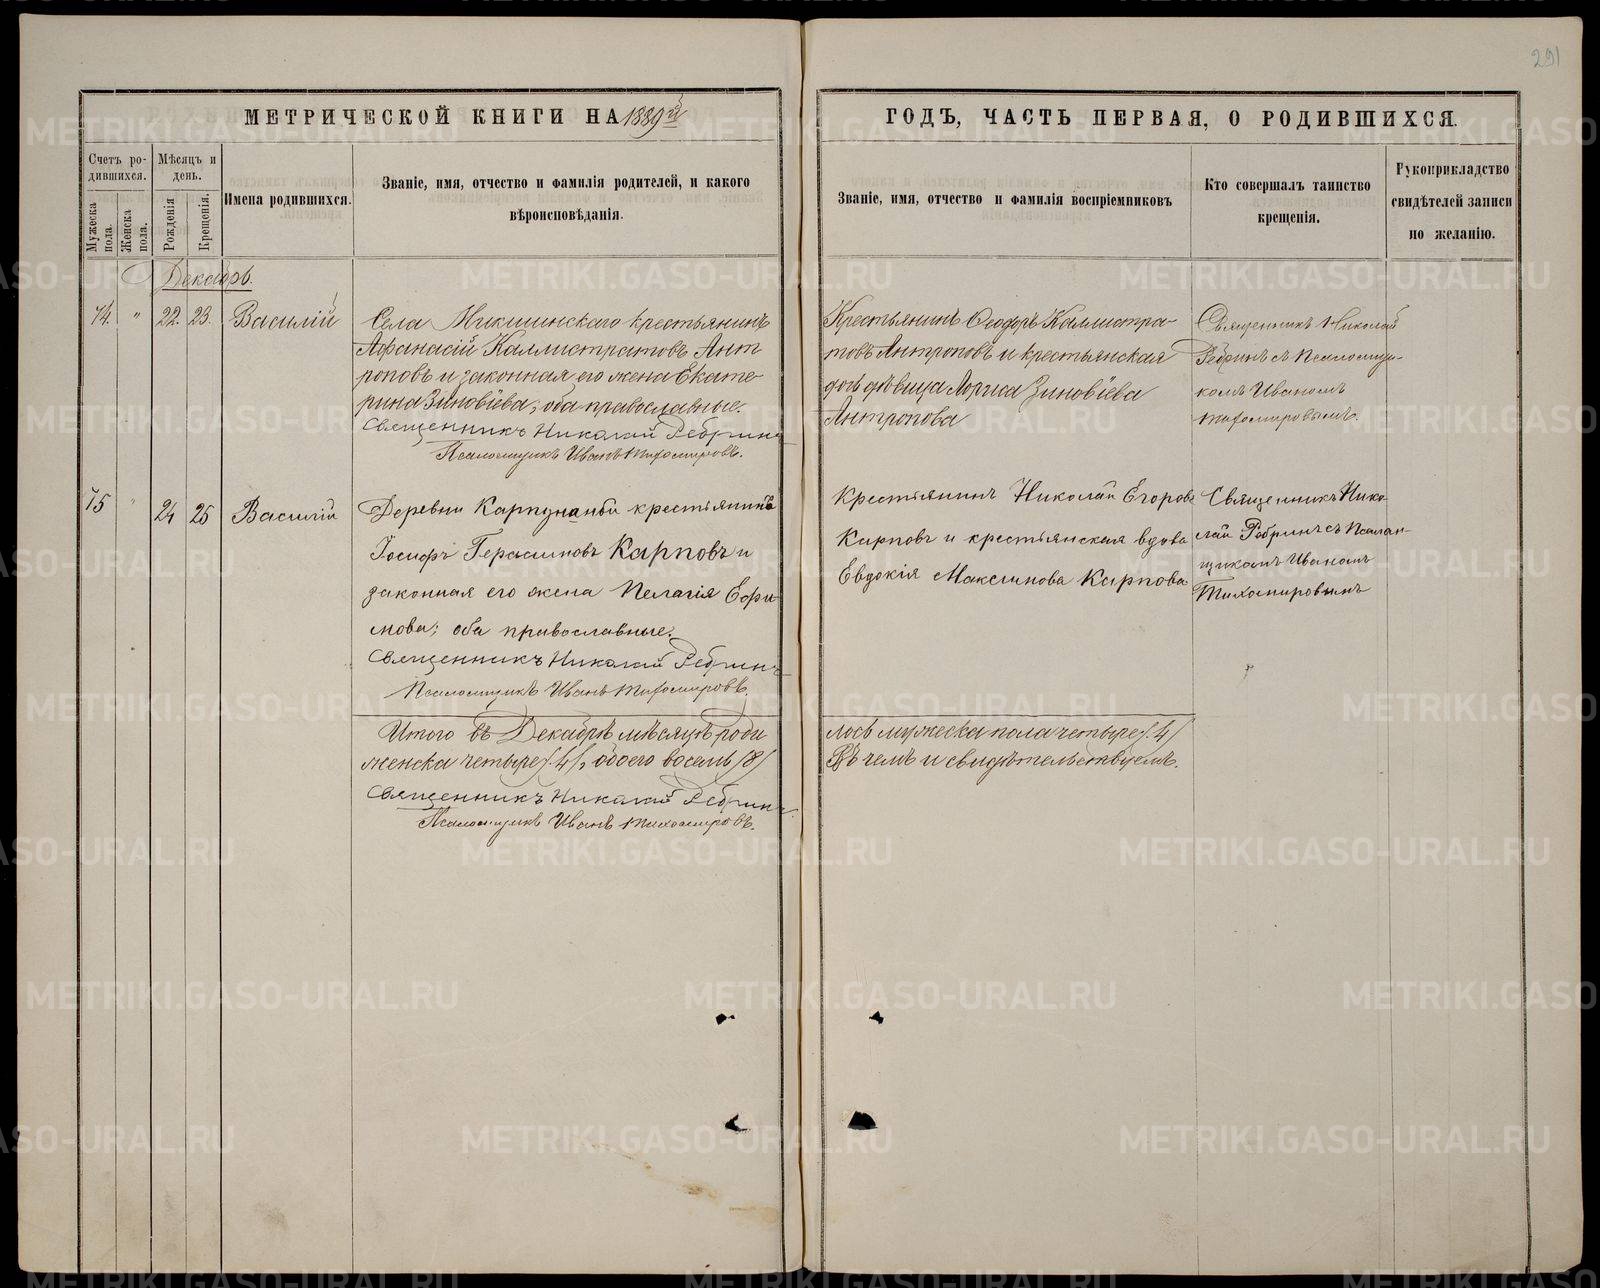 291
МЕТРИЧЕСКОЙ КНИГИ НА 1889й
ГОДЪ, ЧАСТЬ ПЕРВАЯ, О РОДИВШИХСЯ.
Счетъ ро-
дившихся.
Мужеска
пола.
Женска
пола.
Мѣсяцъ и
день.
Рожденія
Крещенія.
Имена родившихся.
Званіе, имя, отчество и фамилія родителей, и какого
вѣроисповѣданія.
Званіе, имя, отчество и фамилія воспріемниковъ
Кто совершалъ таинство
крещенія.
Рукоприкладство
свидѣтелей записи
по желанію.
Декабрь.
74. " 22. 23. Василій
Села Микшинскаго крестьянинъ
Афанасій Каллистратовъ Ант
роповъ и законная его жена Екате-
рина Зиновіева, оба православные.
Священникъ Николай Ребринъ
Псаломщикъ Иванъ Тихомировъ.
Крестьянинъ Ѳеодоръ Каллистра-
товъ Антроповъ и крестьянская
дочь дѣвица Лариса Зиновіева
Антропова
Священникъ Николай
Ребринъ съ Псаломщи-
комъ Иваномъ
Тихомировымъ.
75 " 24 25 Василій
Деревни крестьянинъ
Іосифъ Герасимовъ Карповъ и
законная его жена Пелагія Ефи-
мова; оба православные.
Священникъ Николай Ребринъ
Псаломщикъ Иванъ Тихомировъ.
Крестьянинъ Николай Егоровъ
Карповъ и крестьянская вдова
Евдокія Максимова Карпова
Священникъ Нико-
лай Ребринъ съ Псалом-
щикомъ Иваномъ
Тихомировымъ
Итого въ Декабрѣ мѣсяцѣ роди
лось мужеска пола четыре /4/
женска четыре /4/, обоего восемь /8/
Въ чемъ и свидѣтельствуемъ.
Священникъ Николай Ребринъ
Псаломщикъ Иванъ Тихомировъ.
METRIKI.GASO-URAL.RU